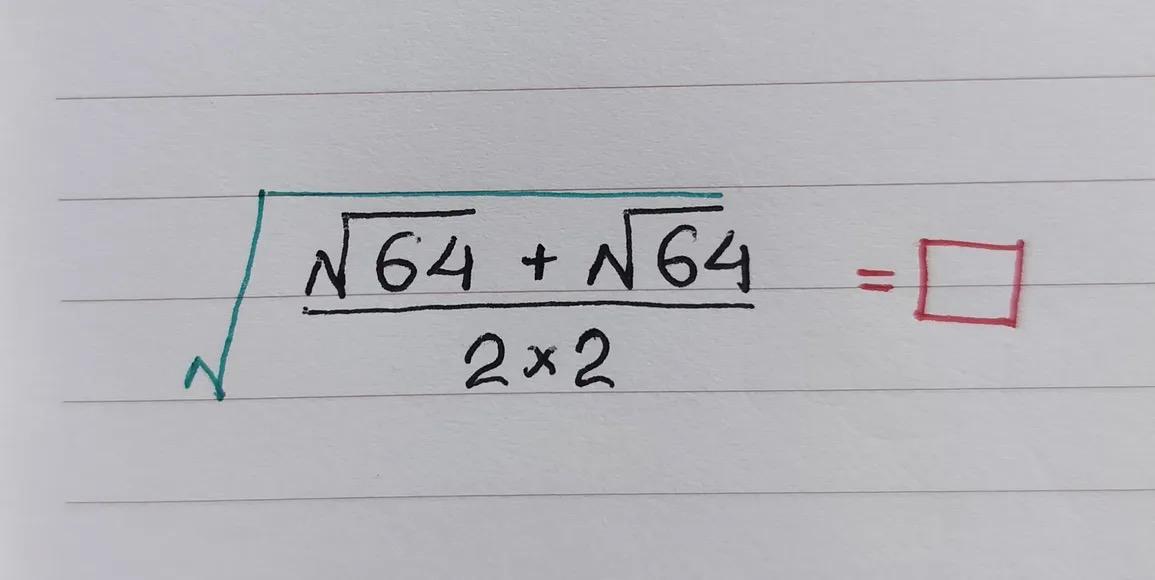 √(√64 + √64
2×2) = □